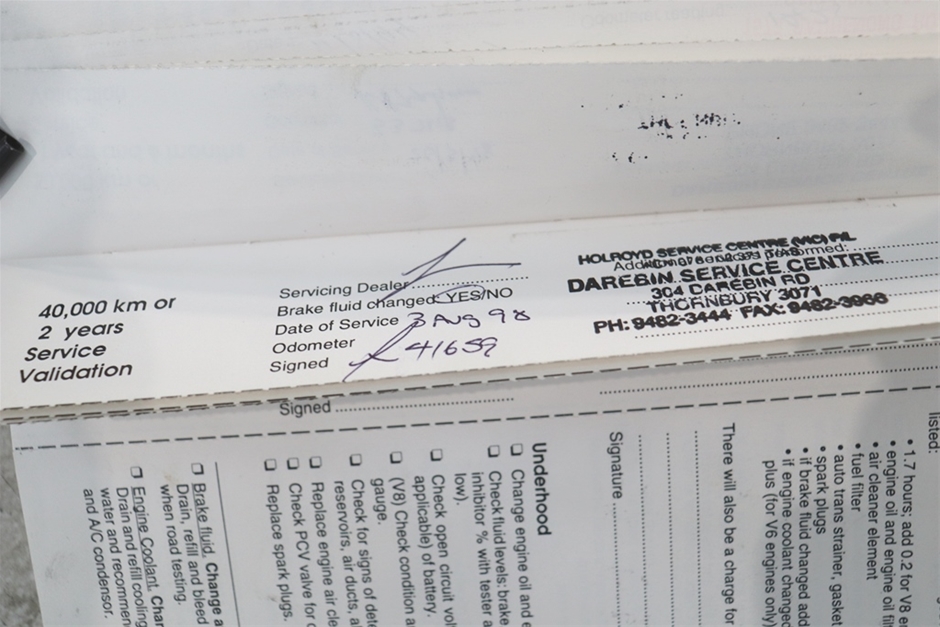 40,000 km or
2 years
Service
Validation
Servicing Dealer
Brake fluid changed YES/NO
Date of Service 3 AUG 98
Odometer 41659
Signed
HOLROYD SERVICE CENTRE (VIC) P/L
DAREBIN SERVICE CENTRE
304 DAREBIN RD
THORNBURY 3071
PH: 9482-3444 FAX: 9482-3966
Signed
listed:
• 1.7 hours; add 0.2 for V8 e
• engine oil and engine oil fil
• air cleaner element
• fuel filter
• auto trans strainer, gasket
• spark plugs
• if brake fluid changed add
• if engine coolant changed
plus (for V6 engines only)
There will also be a charge for
Signature
Underhood
Change engine oil and e
Check fluid levels: brake
inhibitor % with tester a
low).
Check open circuit vol
applicable) of battery.
(V8) Check condition a
gauge.
Check for signs of dete
reservoirs, air ducts, a
Replace engine air cle
Check PCV valve for c
Replace spark plugs.
Brake fluid. Change a
Drain, refill and bleed
when road testing.
Engine Coolant. Char
Drain and refill cooling
water and recommen
and A/C condensor.